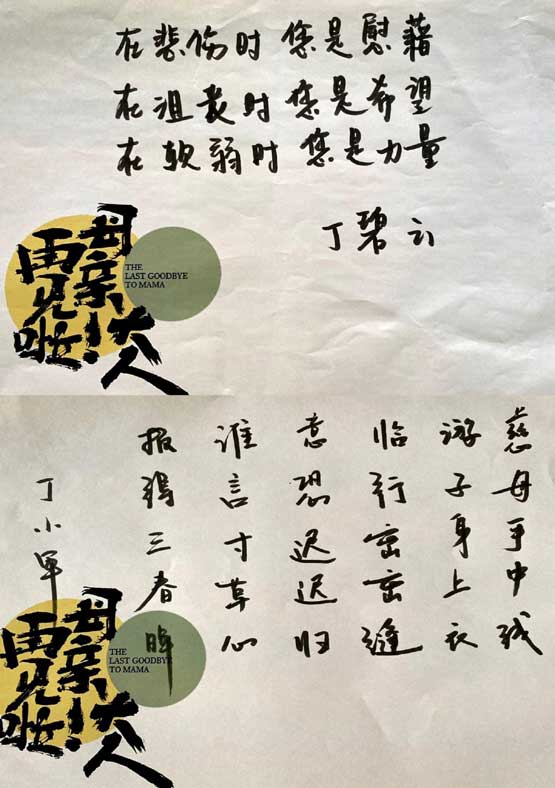 在悲伤时 您是慰藉
在沮丧时 您是希望
在软弱时 您是力量
丁碧云
母亲大人
再见啦!
THE
LAST GOODBYE
TO MAMA
慈母手中线
游子身上衣
临行密密缝
意恐迟迟归
谁言寸草心
报得三春晖
丁小军
母亲大人
再见啦!
THE
LAST GOODBYE
TO MAMA